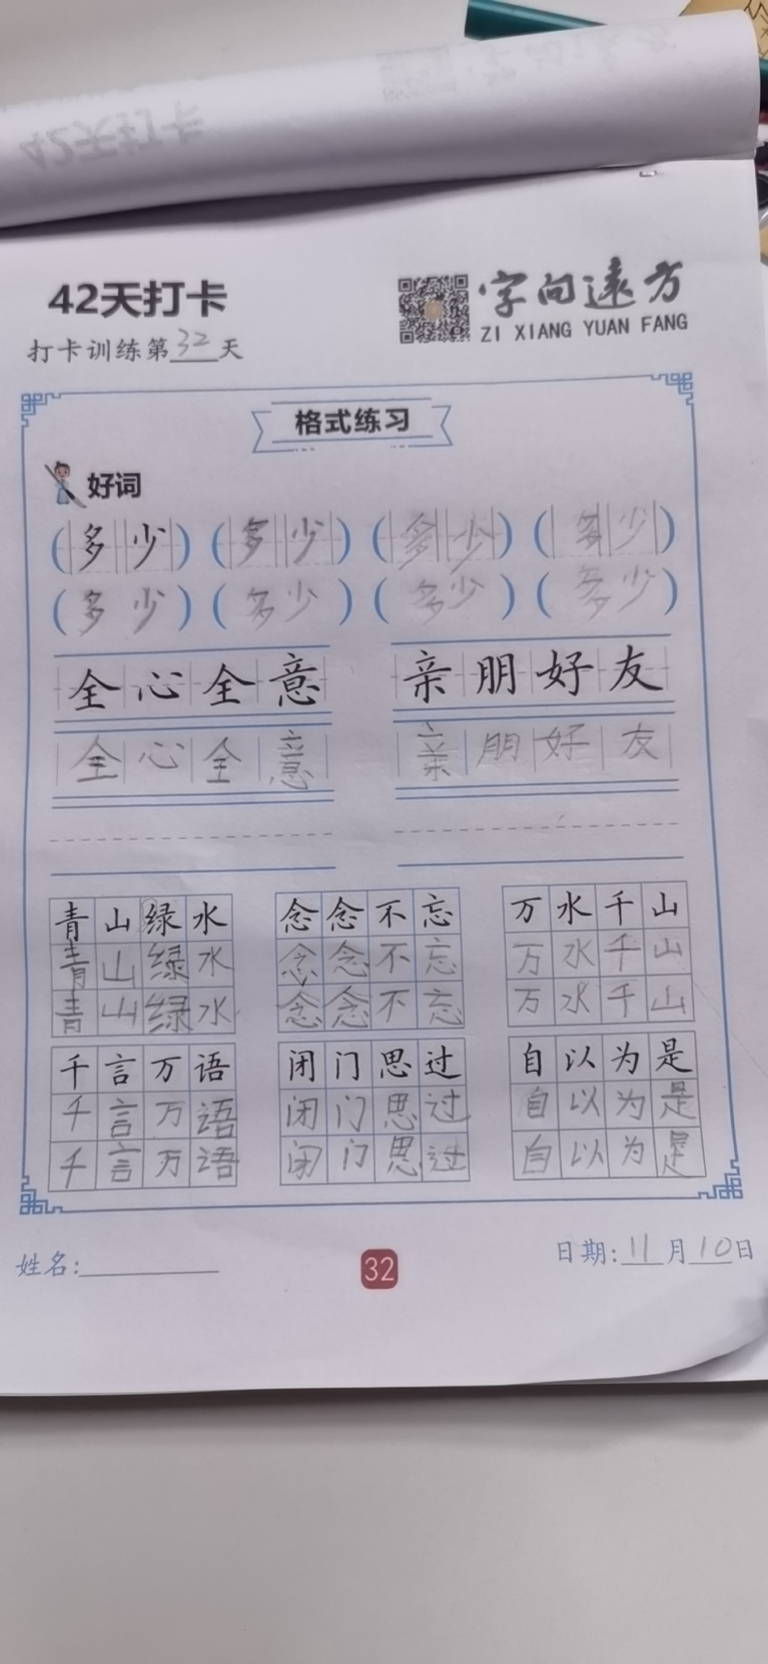 42天打卡
42天打卡
字向远方
ZI XIANG YUAN FANG
打卡训练第32天
格式练习
好词
(多少) (多少) (多少) (多少)
(多少) (多少) (多少) (多少)
全心全意 亲朋好友
全心全意 亲朋好友
青山绿水 念念不忘 万水千山
青山绿水 念念不忘 万水千山
青山绿水 念念不忘 万水千山
千言万语 闭门思过 自以为是
千言万语 闭门思过 自以为是
千言万语 闭门思过 自以为是
姓名: 32 日期:11月10日